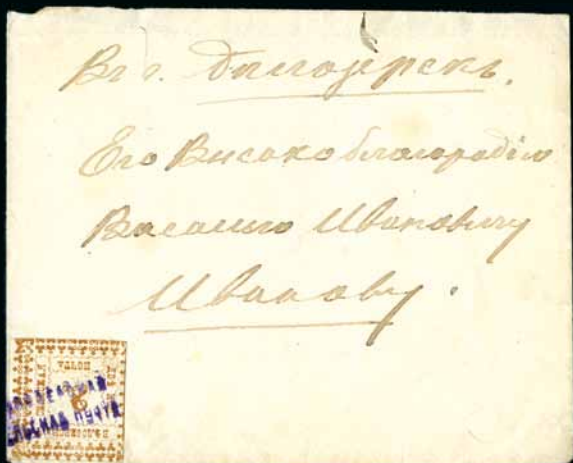 Въ г. Бѣлозерскъ.
Его Високоблагородію
Василию Ивановичу
Иванову.
ПОЧТА
2